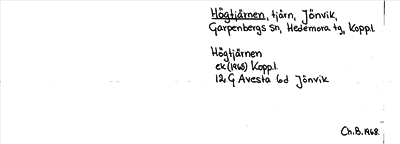 Högtjärnen, tjärn, Jönvik,
Garpenbergs sn, Hedemora tg, Kopp.l.
Högtjärnen
ek (1968) Kopp.l.
12 G Avesta 6d Jönvik
Ch.B. 1968.